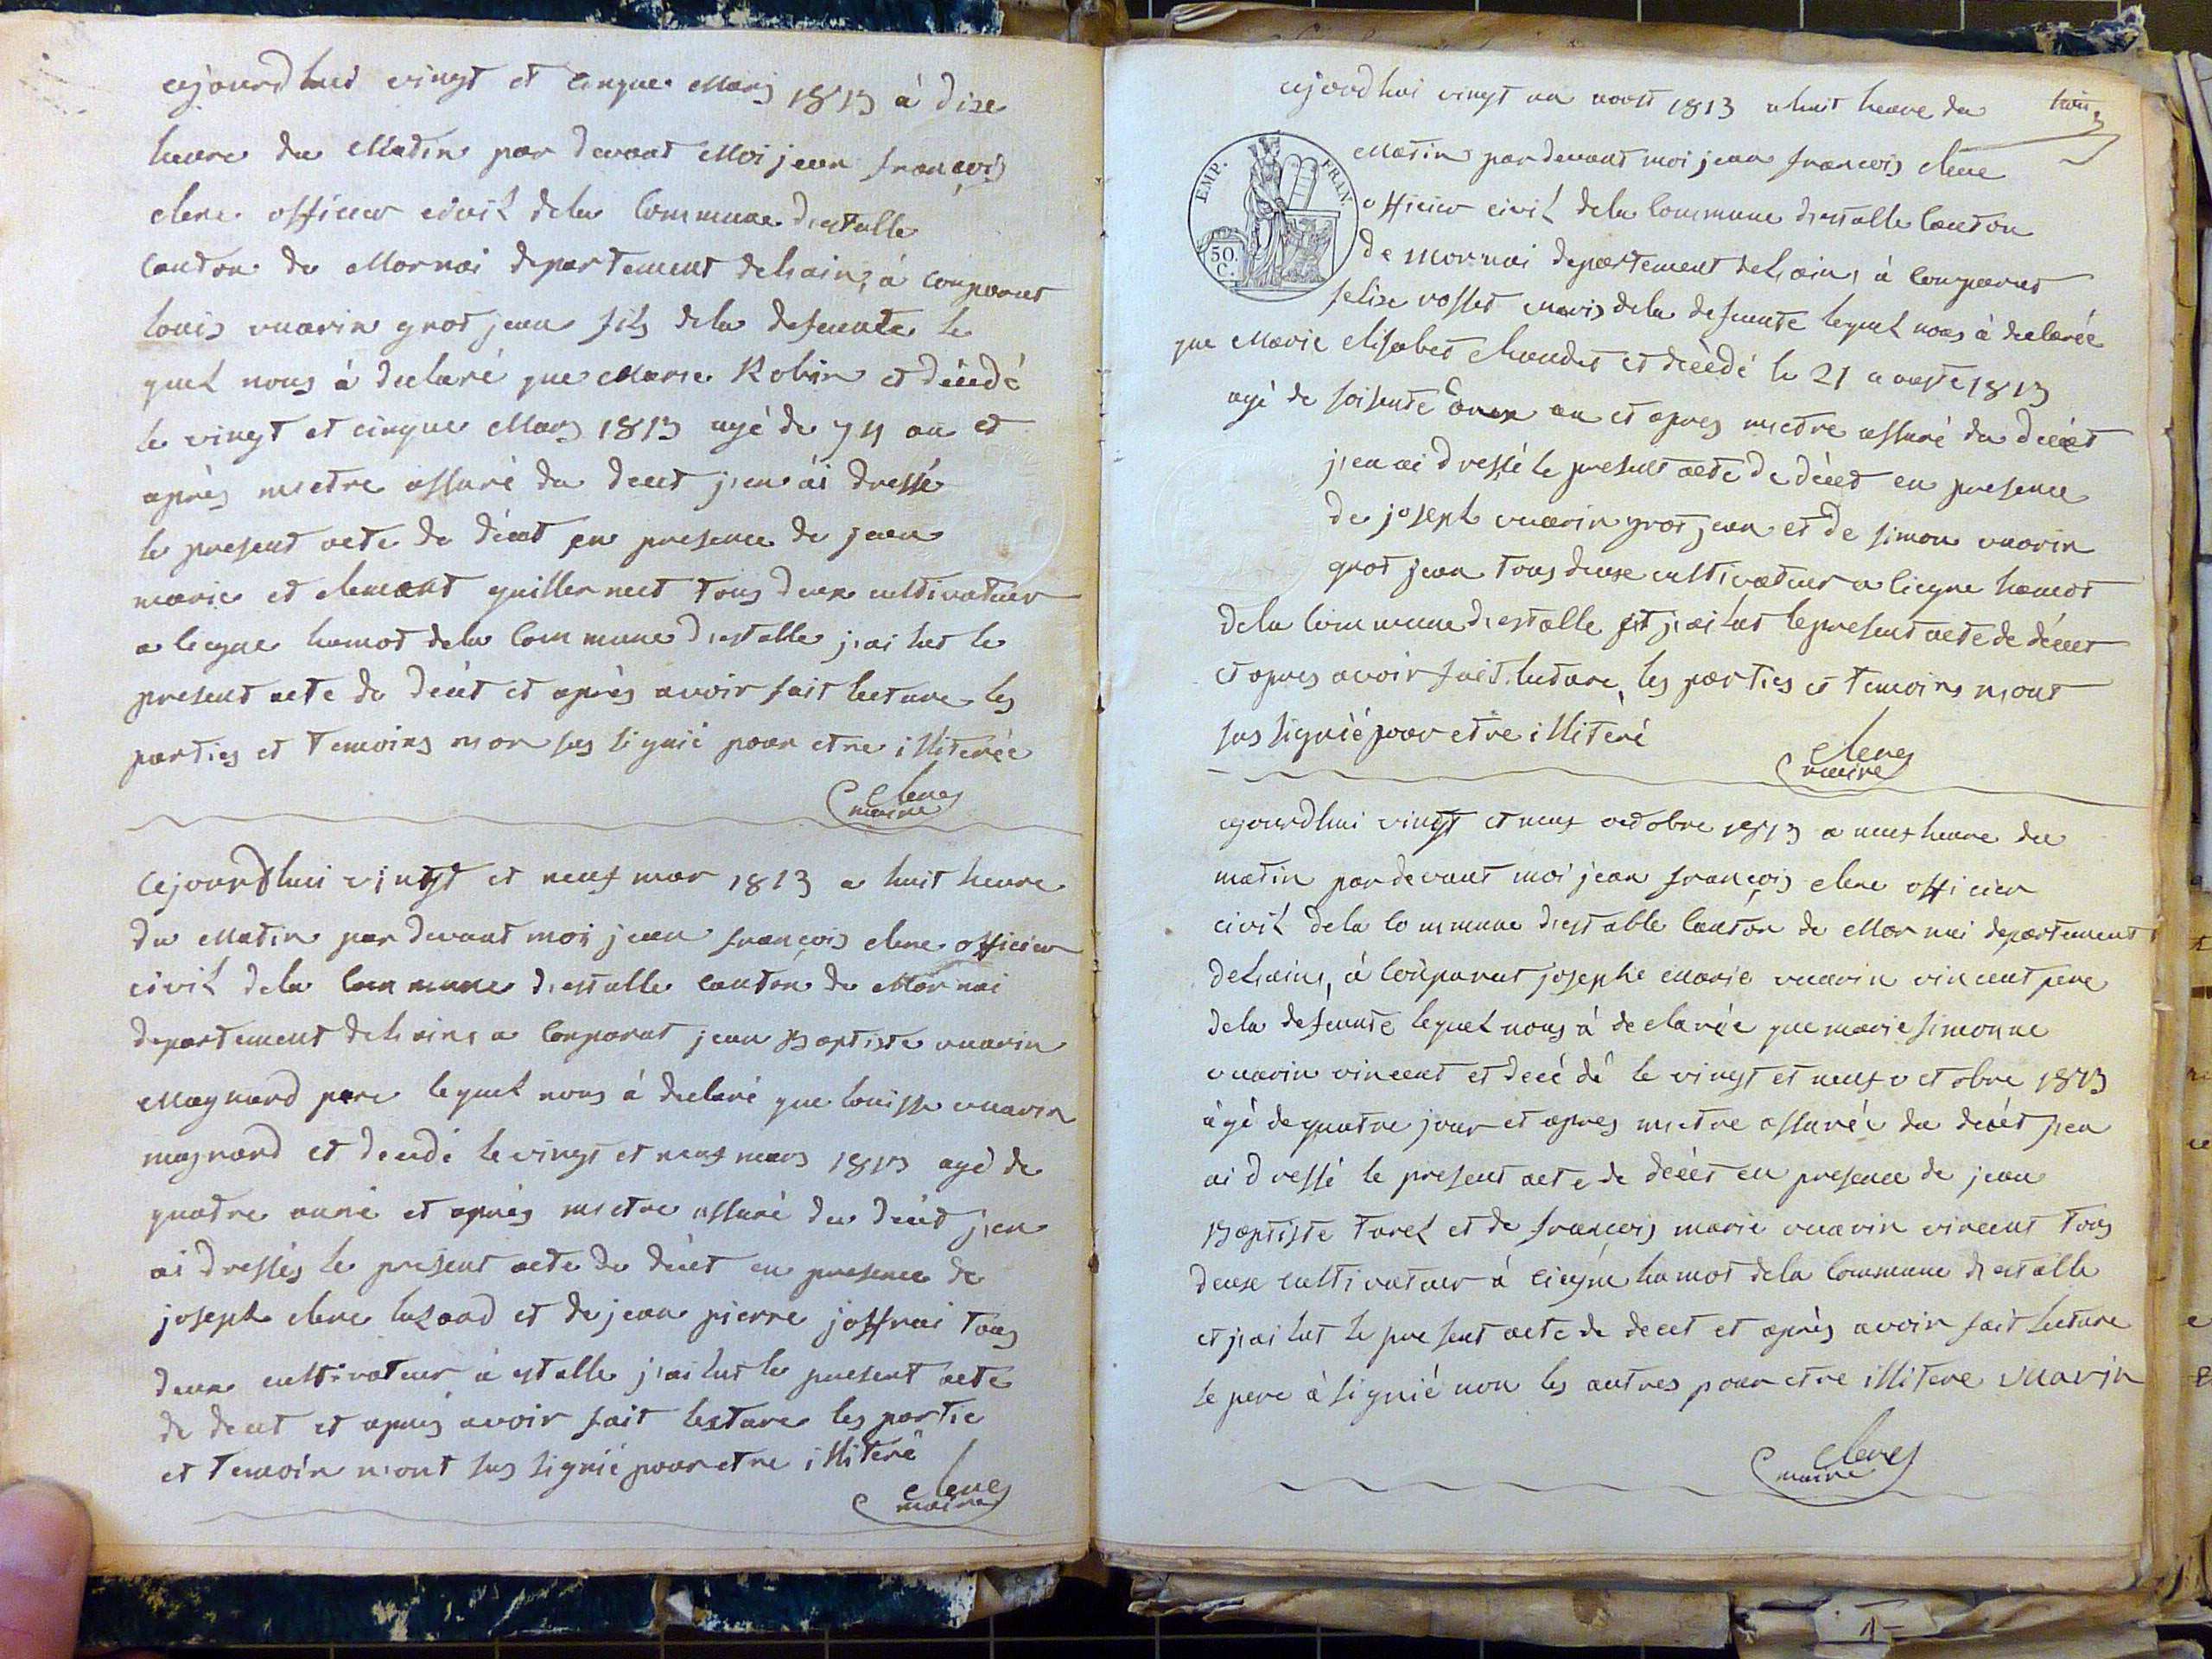 cejourdhui vingt et cinque Mars 1813 à dixe
heure du Matin par devant Moi jean françois
clerc officier civil dela Commune d'estalle
Canton de Mornai departement delsains à comparut
louis vuarin grosjean fils dela defeunte le
quel nous à declaré que Marie Robin et décédé
le vingt et cinque Mars 1813 agé de 74 an et
après m'etre assuré du decet j'en ai dressé
le present acte de décet en presence de jean
marie et clemant guillermet tous deux cultivateur
a liegne hamot dela Commune d'estalle j'ai lut le
present acte de décet et après avoir fait lecture les
parties et temoins n'on sus signié pour etre illiterée
clerc
maire
Cejourdhui vingt et neuf mar 1813 a huit heure
du Matin par devant moi jean françois clerc officier
civil dela Commune d'estalle canton de Mornai
departement delsains a Comparut jean Baptiste vuarin
Magnard pere lequel nous à declaré que louisse vuarin
magnard et decédé le vingt et neuf mars 1813 agé de
quatre anné et aprés m'etre assuré du décet j'en
ai dressés le present acte de décet en presence de
joseph clerc et de jean pierre joffrai tous
deux cultivateur à estalle j'ai lut le present acte
de decet et après avoir fait lecture les partie
et temoin n'ont sus signié pour etre illiteré
clerc
maire
trois
cejourdhui vingt un aoust 1813 a huit heure du
Matin pardevant moi jean françois clerc
EMP. FRAN.
50.
C.
officier civil dela Commune d'estalle Canton
de Mornai departement delsains à Comparut
felixe rosset maris dela defeunte lequel nous à declarée
que Marie elisabet chaudet et décèdé le 21 aouste 1813
agé de soisente an et apres m'etre assuré du décèt
j'en ai dressé le present acte de décet en presence
de joseph vuarin grosjean et de simon vuarin
grosjean tous deuxe cultivateur a liegne hamot
dela Commune d'estalle et j'ai lut le present acte de décet
et apres avoir fait lecture, les parties et temoins n'ont
sus signiée pour etre illiteré
clerc
maire
cejourdhui vingt et neuf octobre 1813 a neuf heure du
matin pardevant moi jean françois clerc officier
civil dela Commune d'estable Canton de Mornai departement
delsains, à Comparut josephe marie vuarin vincent pere
dela defeunte lequel nous à declarée que marie simonne
vuarin vincent et decédé le vingt et neuf octobre 1813
àgé de quatre jour et apres m'etre assurée du décét j'en
ai dressé le present acte de décèt en presence de jean
Baptiste turel et de françois marie vuarin vincent tous
deuxe cultivateur à liegne hamot dela Commune d'estalle
et j'ai lut le present acte de decet et après avoir fait lecture
le pere à signié non les autres pour etre illitere vuarin
clerc
maire